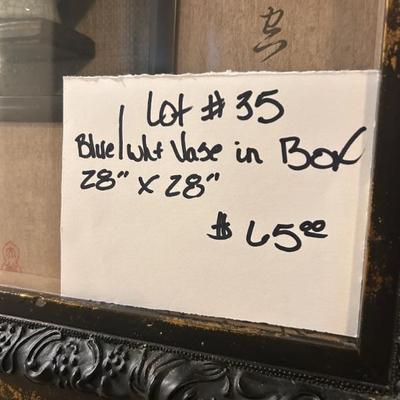 Lot # 35
Blue/wht Vase in Box
28" x 28"
$ 65.00